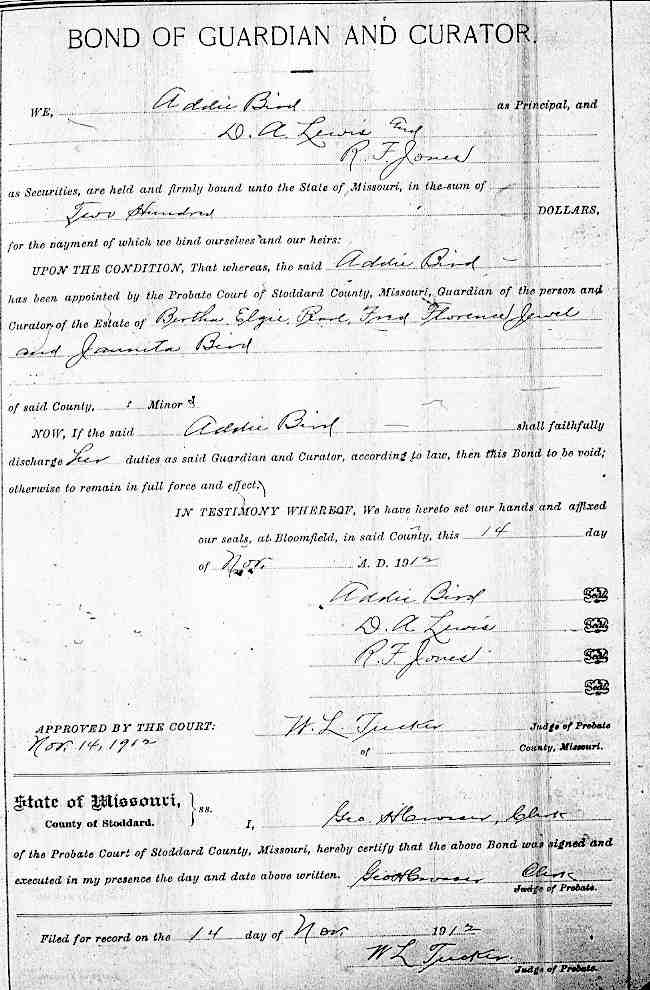 BOND OF GUARDIAN AND CURATOR.
WE, Addie Bird as Principal, and
D. A. Lewis and
R. F. Jones
as Securities, are held and firmly bound unto the State of Missouri, in the sum of
Two Hundred DOLLARS,
for the payment of which we bind ourselves and our heirs:
UPON THE CONDITION, That whereas, the said Addie Bird
has been appointed by the Probate Court of Stoddard County, Missouri, Guardian of the person and
Curator of the Estate of Bertha, Elgie, Fred Florence, Jewel
and Jaunita Bird
of said County, Minors
NOW, If the said Addie Bird shall faithfully
discharge her duties as said Guardian and Curator, according to law, then this Bond to be void;
otherwise to remain in full force and effect.
IN TESTIMONY WHEREOF, We have hereto set our hands and affixed
our seals, at Bloomfield, in said County, this 14 day
of Nov. A. D. 1912
Addie Bird Seal
D. A. Lewis Seal
R. F. Jones Seal
Seal
APPROVED BY THE COURT: W. L. Tucker Judge of Probate
Nov. 14, 1912 of County, Missouri.
State of Missouri, } ss.
County of Stoddard. I, Geo. H Crosser, Clerk
of the Probate Court of Stoddard County, Missouri, hereby certify that the above Bond was signed and
executed in my presence the day and date above written. Geo H Crosser Clerk
Judge of Probate.
Filed for record on the 14 day of Nov. 1912
W L Tucker.
Judge of Probate.